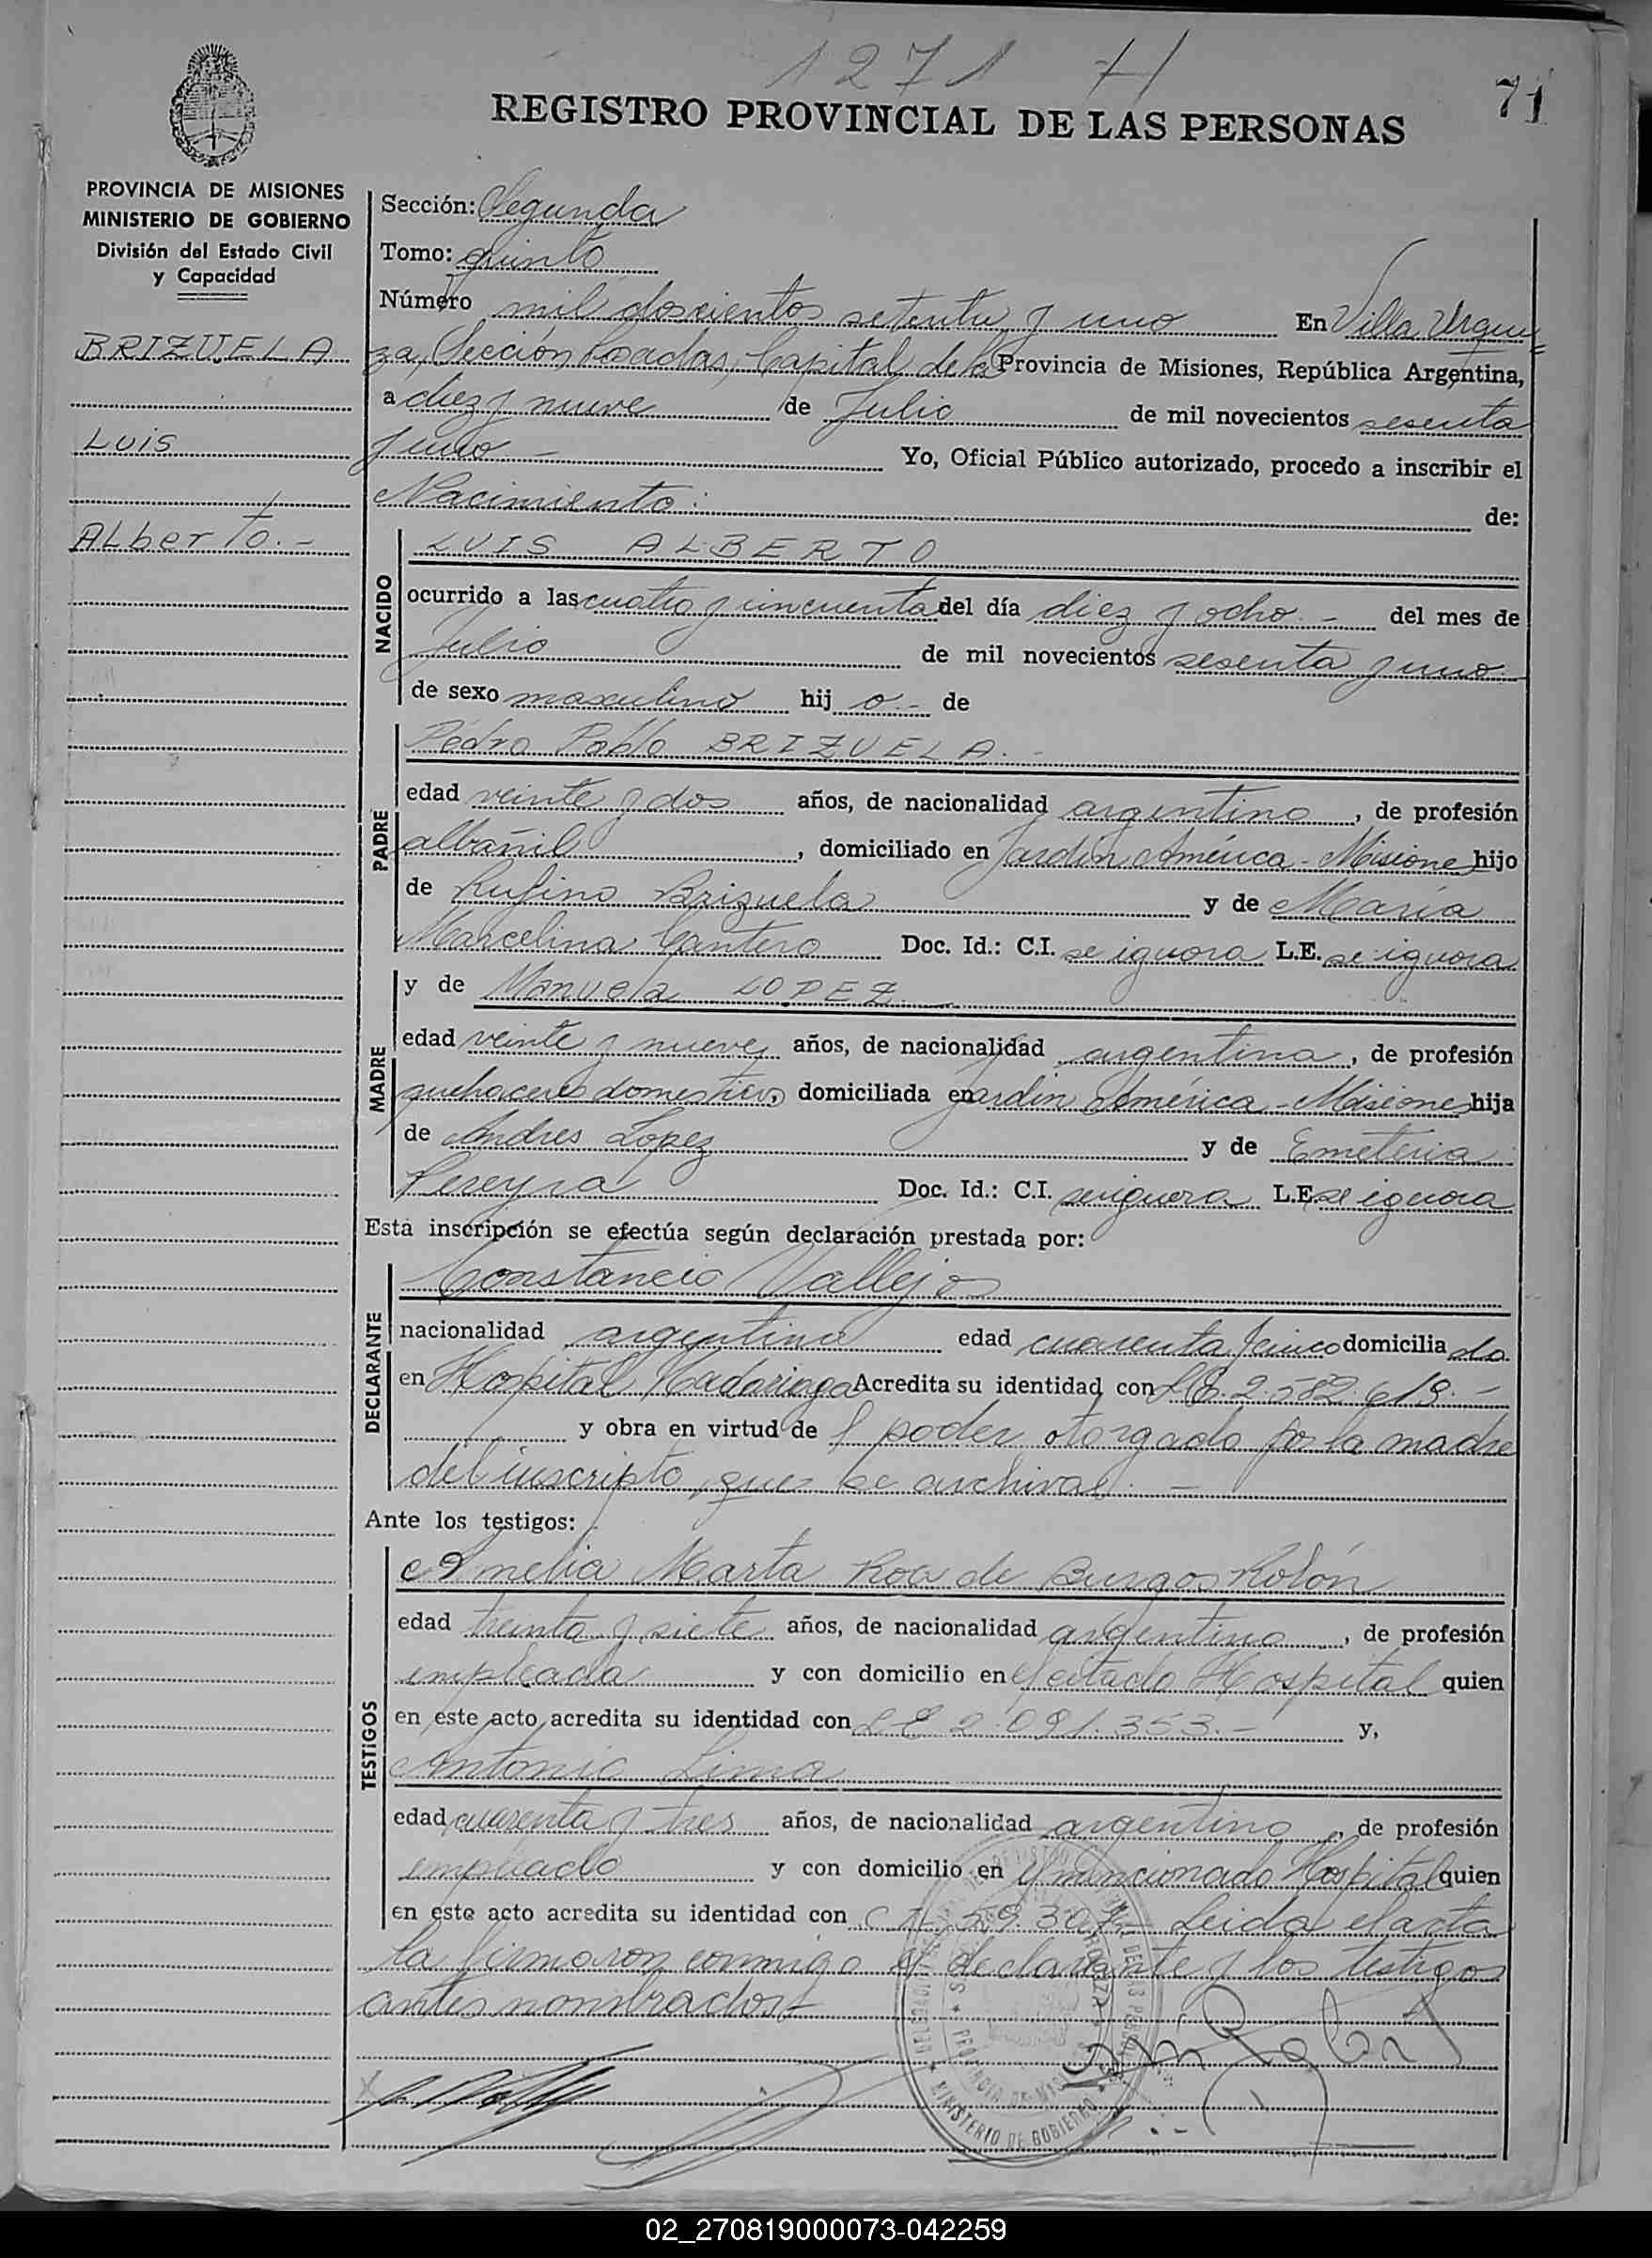 1271 H
71
REGISTRO PROVINCIAL DE LAS PERSONAS
PROVINCIA DE MISIONES
MINISTERIO DE GOBIERNO
División del Estado Civil
y Capacidad
BRIZUELA
Luis
Alberto.-
Sección: Segunda
Tomo: quinto
Número mil doscientos setenta y uno En Villa Urqui=
za, Sección Posadas, Capital de la Provincia de Misiones, República Argentina,
a diez y nueve de Julio de mil novecientos sesenta
y uno - Yo, Oficial Público autorizado, procedo a inscribir el
Nacimiento: de:
NACIDO
LUIS ALBERTO
ocurrido a las cuatro y cincuenta del día diez y ocho.- del mes de
Julio de mil novecientos sesenta y uno.
de sexo masculino hij o.- de
PADRE
Pedro Pablo BRIZUELA.-
edad veinte y dos años, de nacionalidad argentino, de profesión
albañil, domiciliado en Jardín América - Misiones hijo
de Rufino Brizuela y de María
Marcelina Cantero Doc. Id.: C.I. se ignora L.E. se ignora
MADRE
y de Manuela LOPEZ.-
edad veinte y nueve años, de nacionalidad argentina, de profesión
quehaceres domesticos, domiciliada en Jardín América - Misiones hija
de Andres Lopez y de Emeteria
Pereyra Doc. Id.: C.I. se ignora L.E. se ignora
Esta inscripción se efectúa según declaración prestada por:
DECLARANTE
Constancio Vallejos
nacionalidad argentino edad cuarenta y cinco domicilia do
en Hospital Madariaga Acredita su identidad con L.E. 2.582.619.-
y obra en virtud de l poder otorgado por la madre
del inscripto, que se archiva.-
Ante los testigos:
TESTIGOS
Amelia Marta Roa de Burgos Rolón
edad treinta y siete años, de nacionalidad argentina, de profesión
empleada y con domicilio en el citado Hospital quien
en este acto acredita su identidad con L E 2.091.353.- y,
Antonio Lima
edad cuarenta y tres años, de nacionalidad argentino, de profesión
empleado y con domicilio en el mencionado Hospital quien
en este acto acredita su identidad con C I Leida el acta
la firmaron conmigo el declarante y los testigos
antes nombrados.-
MINISTERIO DE GOBIERNO
PROVINCIA DE MISIONES
02_270819000073-042259